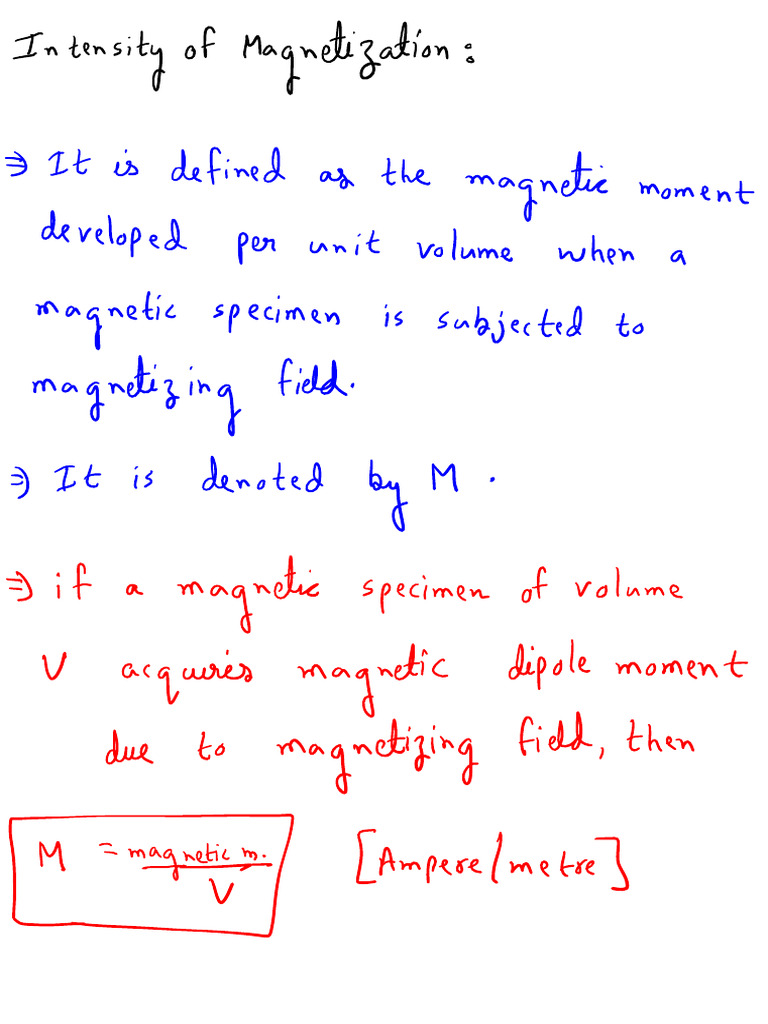 Intensity of Magnetization:
⇒ It is defined as the magnetic moment
developed per unit volume when a
magnetic specimen is subjected to
magnetizing field.
⇒ It is denoted by M.
⇒ if a magnetic specimen of volume
V acquires magnetic dipole moment
due to magnetizing field, then
M = magnetic m. / V [Ampere/metre]